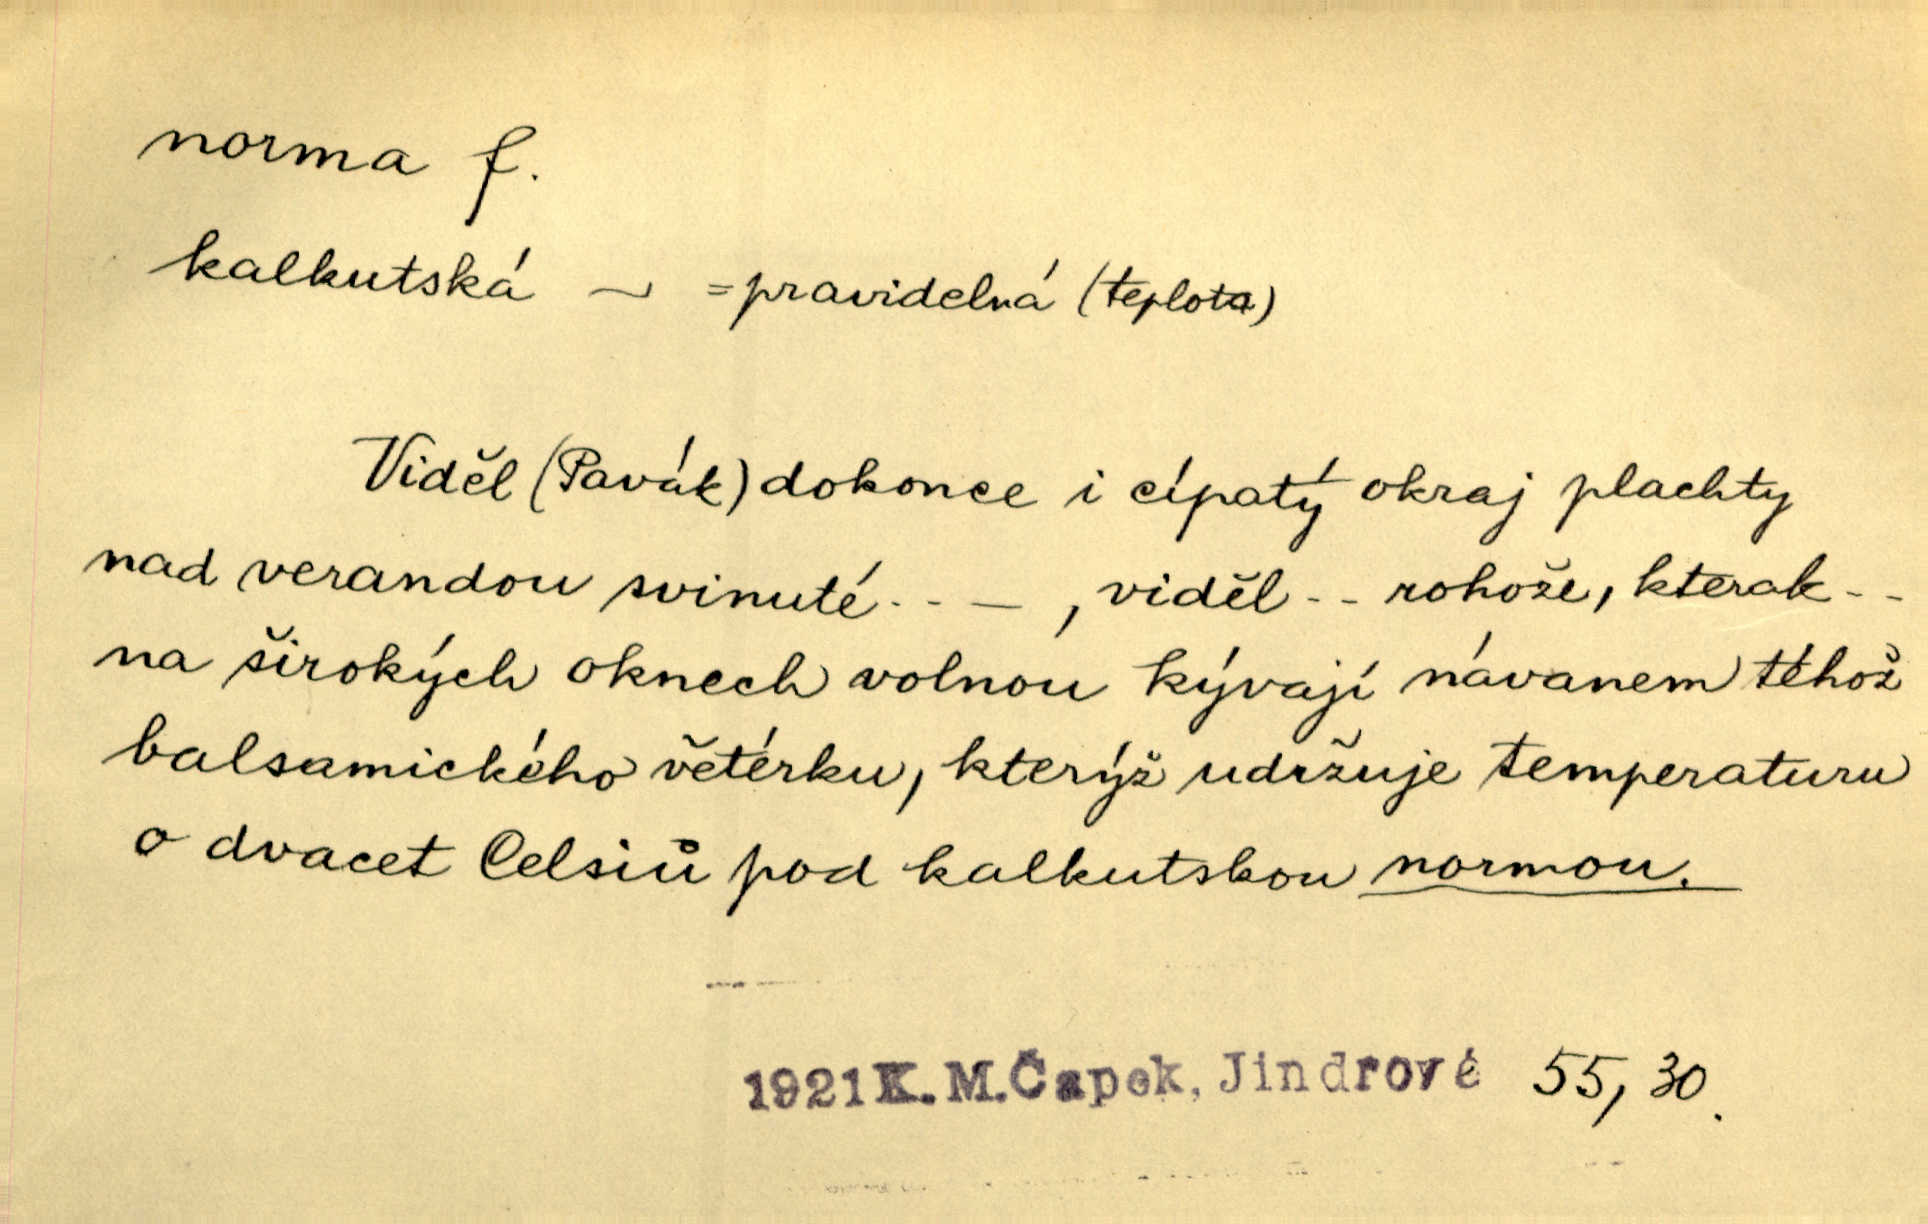 norma f.
kalkutská ~ = pravidelná (teplota)
Viděl (Pavák) dokonce i cípatý okraj plachty
nad verandou svinuté . . — , viděl - - rohože, kterak - -
na širokých oknech volnou kývají návanem téhož
balsamického větérku, kterýž udržuje temperaturu
o dvacet Celsiů pod kalkutskou normou.
1921 K. M. Čapek, Jindrové 55, 30.